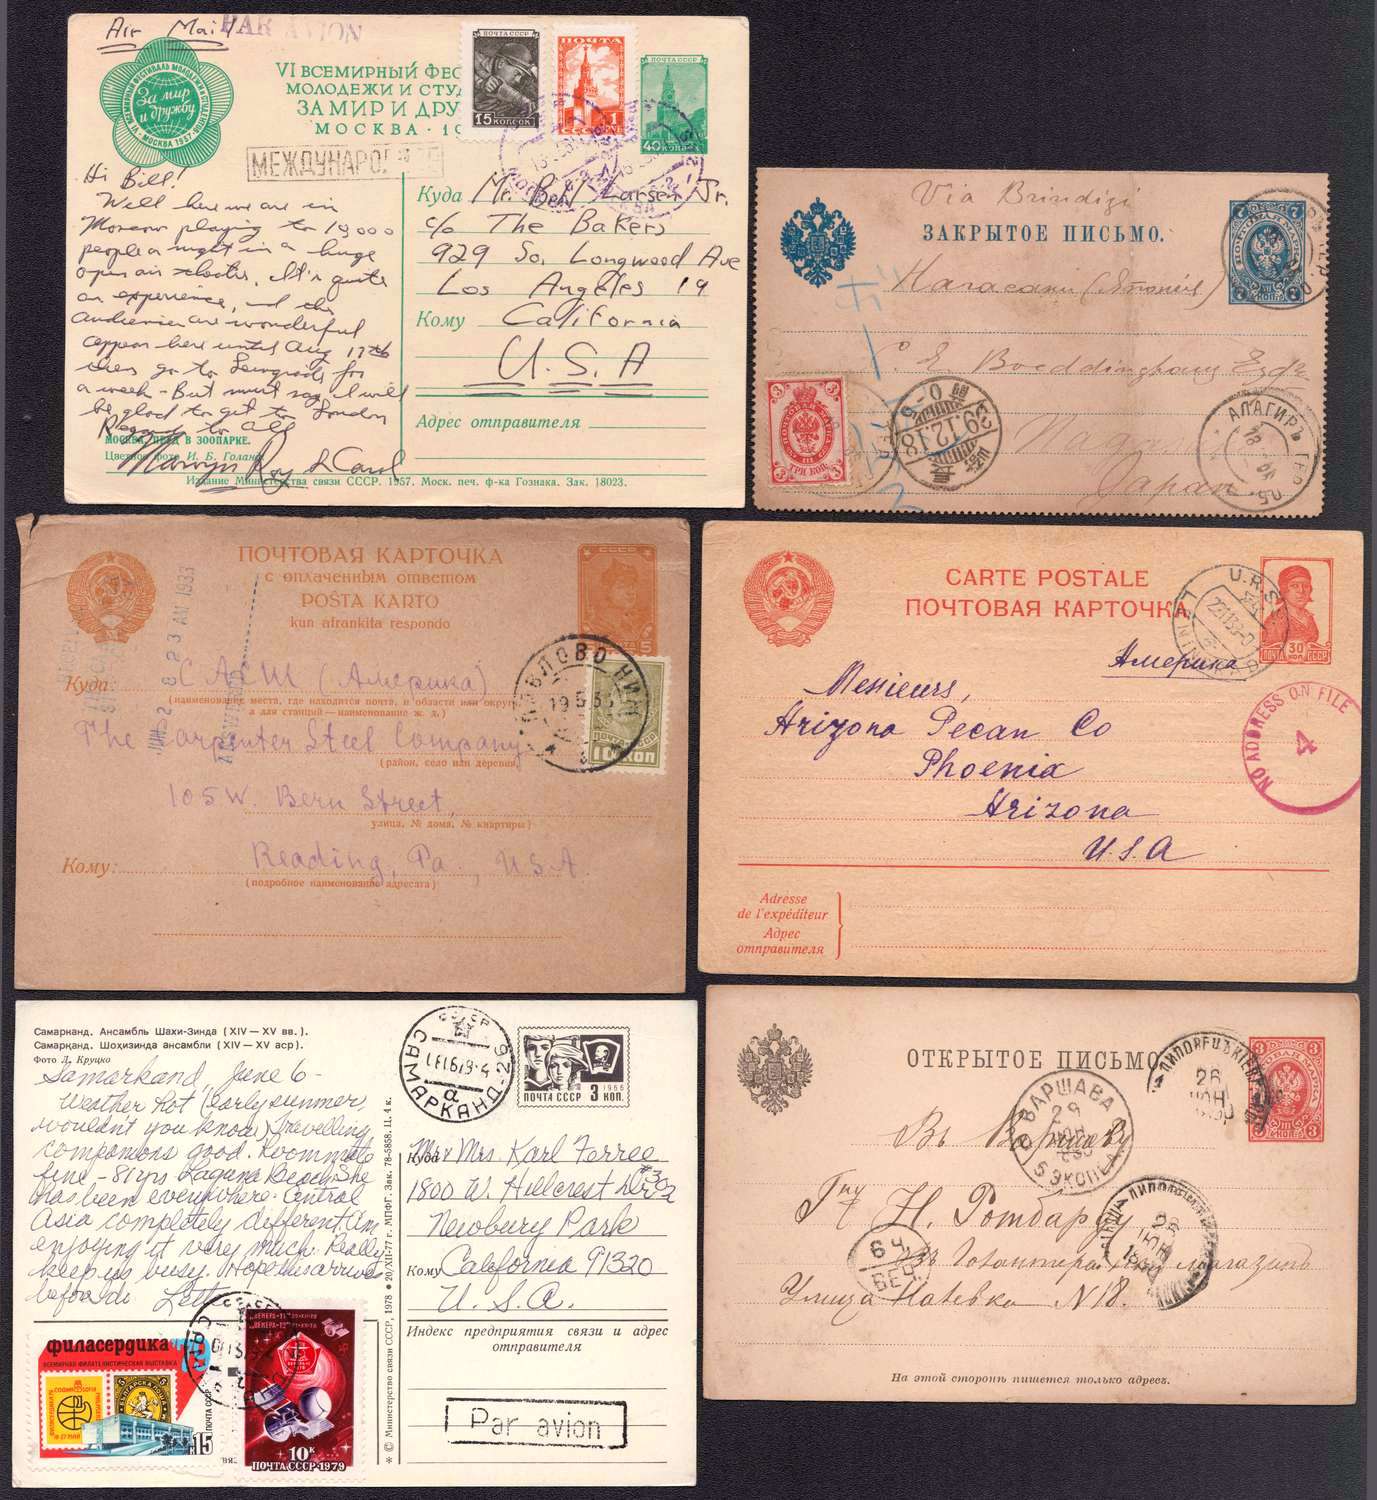 Air Mail
PAR AVION
VI ВСЕМИРНЫЙ ФЕС
МОЛОДЕЖИ И СТУ
ЗА МИР И ДРУ
МОСКВА · 19
За мир
и дружбу
МОСКВА 1957
МЕЖДУНАРОД
ПОЧТА СССР
15 КОПЕЕК
ПОЧТА
1
40 КОПЕЕК
МОСКВА
Hi Bill!
Well here we are in
Moscow playing to 14000
people a night in a huge
open air theater. It's quite
an experience, and the
audiences are wonderful
appear here until Aug 17th
then go to Leningrad for
a week - But must say I will
be glad to get to London
Regards to All
Marvyn Roy & Carol
Куда Mr. Bill Larsen Jr.
c/o The Bakers
929 So. Longwood Ave
Los Angeles 19
Кому California
U.S.A
Адрес отправителя
МОСКВА. ПРУД В ЗООПАРКЕ.
Цветное фото И. Б. Голанд
Издание Министерства связи СССР. 1957. Моск. печ. ф-ка Гознака. Зак. 18023.
Via Brindizi
ЗАКРЫТОЕ ПИСЬМО.
7
Нагасаки (Японія)
C. E. Boeddinghaus Esqre
Nagasaki
Japan
3
ТРИ КОП.
29.12.18
АЛАГИРЪ ТЕР. О.
ПОЧТОВАЯ КАРТОЧКА
с оплаченным ответом
POŜTA KARTO
kun afrankita respondo
СССР
5
10 КОП
JUN 2 8 23 AM 1933
ПАВЛОВО НИЖ
19 5 33
Куда: С.А.С.Ш. (Америка)
(наименование места, где находится почта, и области или округа,
а для станций—наименование ж. д.)
The Carpenter Steel Company
(район, село или деревня,
105 W. Bern Street,
улица, № дома, № квартиры)
Кому: Reading, Pa., U.S.A.
(подробное наименование адресата)
CARTE POSTALE
ПОЧТОВАЯ КАРТОЧКА
30 КОП.
ПОЧТА СССР
LENINGRAD
U.R.S.S.
Америка
Messieurs,
Arizona Pecan Co
Phoenix
Arizona
U.S.A
NO ADDRESS ON FILE
4
Adresse
de l'expéditeur
Адрес
отправителя
Самарканд. Ансамбль Шахи-Зинда (XIV — XV вв.).
Самарқанд. Шоҳизинда ансамбли (XIV — XV аср).
Фото Л. Круцко
САМАРКАНД-26
а
1966
ПОЧТА СССР 3 КОП.
Samarkand, June 6 -
Weather Hot (early summer,
wouldn't you know) Travelling
companions good. Roommate
fine - 81 yrs Laguna Beach She
has been everywhere. Central
Asia completely different. Am
enjoying it very much. Really
keep us busy. Hope this arrives
before I do.
Куда Mr & Mrs. Karl Ferree
1800 W. Hillcrest Dr. #302
Newbury Park
Кому California 91320
U.S.A.
Индекс предприятия связи и адрес
отправителя
Par avion
© Министерство связи СССР, 1978 * 20/XII-77 г. МПФГ. Зак. 78-5858. Ц. 4 к.
филасердика 79
ВСЕМИРНАЯ ФИЛАТЕЛИСТИЧЕСКАЯ ВЫСТАВКА
ПОЧТА СССР
К 15
10 к
ПОЧТА СССР·1979
ОТКРЫТОЕ ПИСЬМО.
3
26
ІЮН
1890
ВАРШАВА
29
ІЮН
1890
5 ЭКСПЕД.
Въ Варшаву
Гну Н. Ротбарду
въ Галантер. магазинъ
Улица Налевка N 18.
6 Ч.
ВЕЧ.
На этой сторонѣ пишется только адресъ.